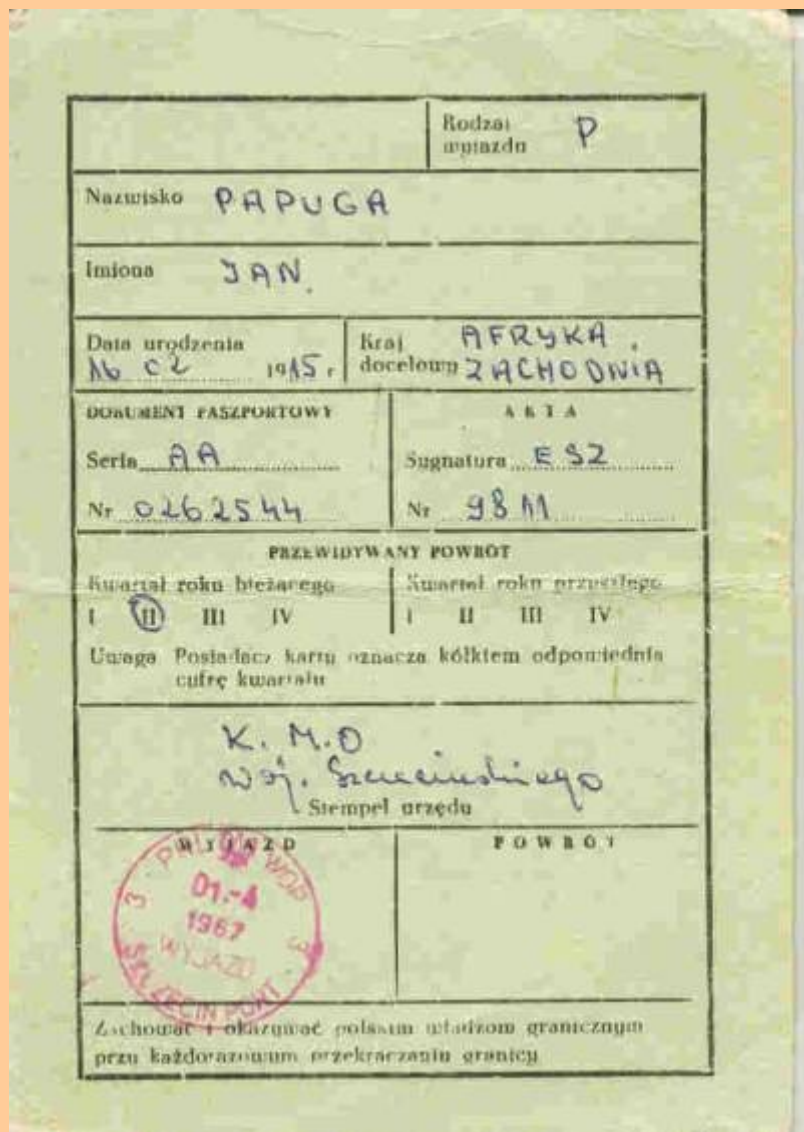 Rodzaj
wyjazdu P
Nazwisko PAPUGA
Imiona JAN.
Data urodzenia
16 02 1915 r
Kraj AFRYKA
docelowy ZACHODNIA
DOKUMENT PASZPORTOWY
Seria AA
Nr 0262544
AKTA
Sygnatura ESZ
Nr 9811
PRZEWIDYWANY POWRÓT
Kwartał roku bieżącego
I II III IV
Kwartał roku przyszłego
I II III IV
Uwaga Posiadacz karty oznacza kółkiem odpowiednią
cyfrę kwartału
K. M.O
Woj. Szczecińskiego
Stempel urzędu
WYJAZD
3 WOP 3
01.-4
1967
WYJAZD
SZCZECIN PORT
POWRÓT
Zachować i okazywać polskim władzom granicznym
przy każdorazowym przekraczaniu granicy